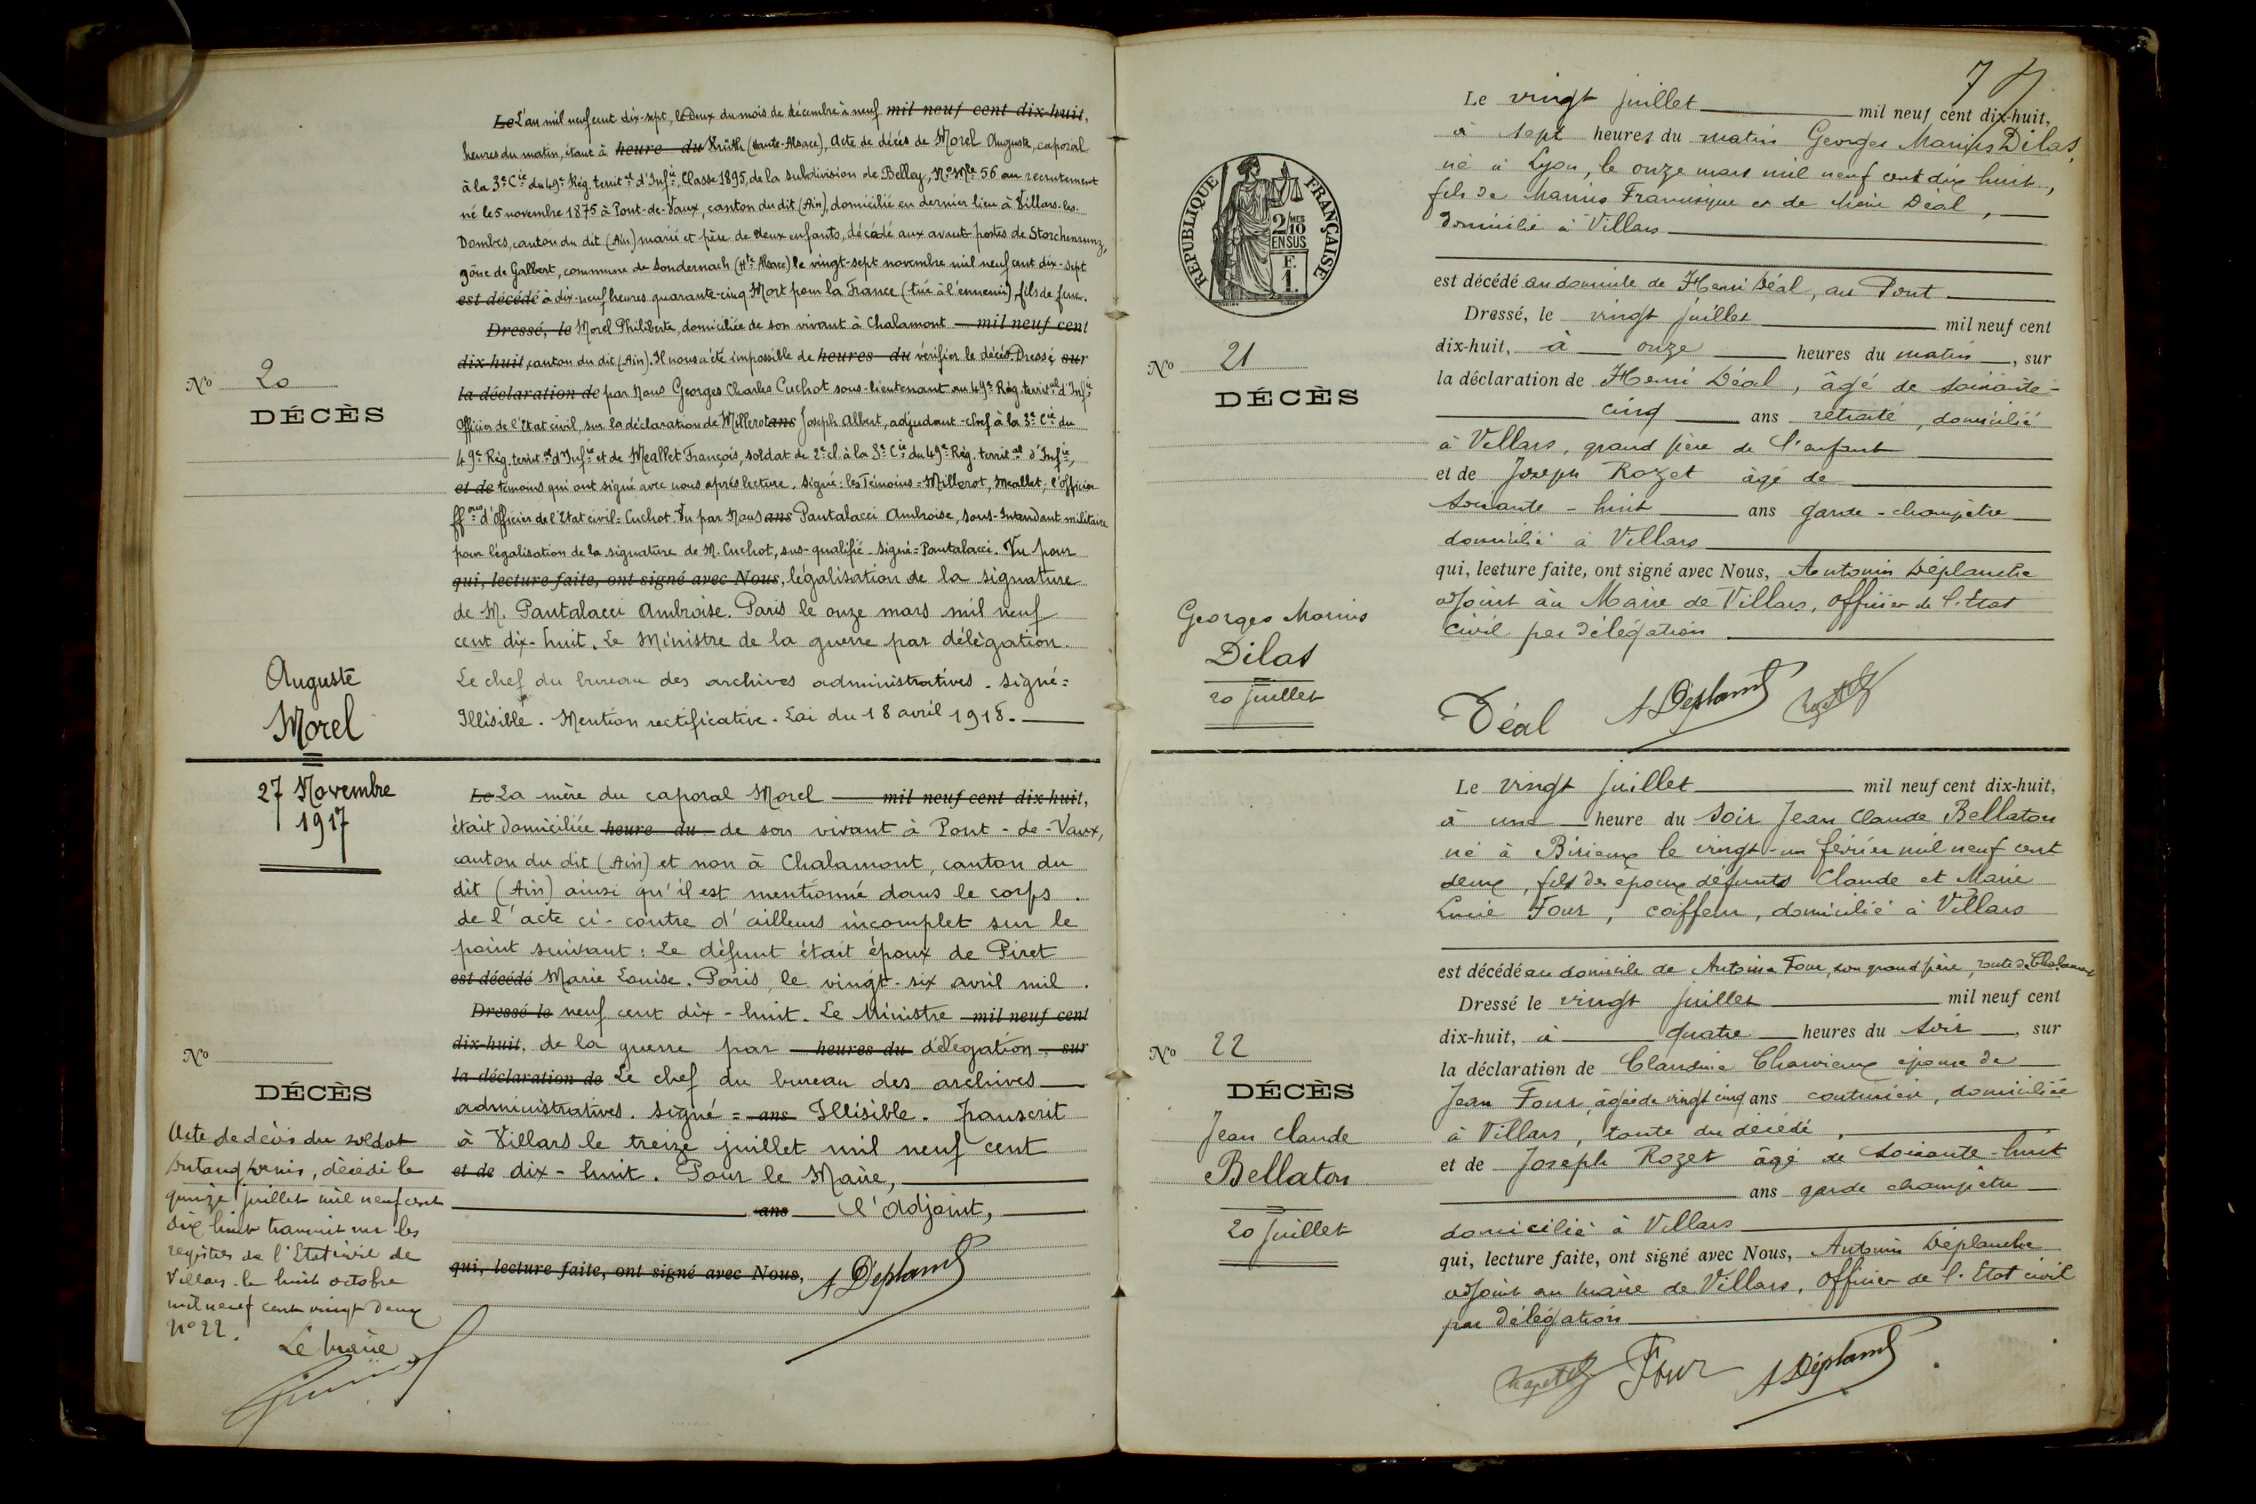 Le L'an mil neuf cent dix-sept, le deux du mois de décembre à neuf mil neuf cent dix-huit,
heures du matin, étant à heure du Krüth (Haute-Alsace), Acte de décès de Morel Auguste, caporal
à la 3e Cie du 49e Rég. territal d'Infie Classe 1895, de la subdivision de Belley, No Mle 56 au recrutement
né le 5 novembre 1875 à Pont-de-Vaux, canton du dit (Ain), domicilié en dernier lieu à Villars-les-
Dombes, canton du dit (Ain) marié et père de deux enfants, décédé aux avant-postes de Storchensunz,
zône de Galbert, commune de Sondernach (Hte Alsace) le vingt-sept novembre mil neuf cent dix-sept
est décédé à dix-neuf heures quarante-cinq Mort pour la France (tué à l'ennemi), fils de feue.
Dressé, le Morel Philiberte, domiciliée de son vivant à Chalamont mil neuf cent
dix-huit, canton du dit (Ain). Il nous a été impossible de heures du vérifier le décès. Dressé sur
la déclaration de par Nous Georges Charles Cuchot sous-lieutenant au 49e Rég. territal d'Infie
Officier de l'Etat civil, sur la déclaration de Millerot ans Joseph Albert, adjudant-chef à la 3e Cie du
49e Rég. territal d'Infie et de Meallet François, soldat de 2e cl. à la 3e Cie du 49e Rég. territal d'Infie,
et de témoins qui ont signé avec nous après lecture. Signé: les Témoins = Millerot, Meallet; l'officier
ffons d'Officier de l'Etat civil = Cuchot. Vu par Nous ans Pantalacci Ambroise, sous-Intendant militaire
pour légalisation de la signature de M. Cuchot, sus-qualifié. Signé = Pantalacci. Vu pour
qui, lecture faite, ont signé avec Nous, légalisation de la signature
de M. Pantalacci Ambroise. Paris le onze mars mil neuf
cent dix-huit. Le Ministre de la guerre par délégation.
Le chef du bureau des archives administratives. Signé =
Illisible. Mention rectificative. Loi du 18 avril 1918.
No 20
DÉCÈS
Auguste
Morel
27 Novembre
1917
Le La mère du caporal Morel mil neuf cent dix-huit,
était domiciliée heure du de son vivant à Pont-de-Vaux,
canton du dit (Ain) et non à Chalamont, canton du
dit (Ain) ainsi qu'il est mentionné dans le corps
de l'acte ci-contre d'ailleurs incomplet sur le
point suivant: Le défunt était époux de Piret
est décédé Marie Louise. Paris, le vingt-six avril mil
Dressé le neuf cent dix-huit. Le Ministre mil neuf cent
dix-huit, de la guerre par heures du délégation, sur
la déclaration de Le chef du bureau des archives
administratives. Signé = ans Illisible. Transcrit
à Villars le treize juillet mil neuf cent
et de dix-huit. Pour le Maire,
ans l'adjoint,
qui, lecture faite, ont signé avec Nous, A Déplanch
No
DÉCÈS
Acte de décès du soldat
décédé le
quinze juillet mil neuf cent
dix huit transcrit sur les
registres de l'Etat civil de
Villars le huit octobre
mil neuf cent vingt deux
No 22.
Le Maire
7
Le vingt juillet mil neuf cent dix-huit,
à sept heures du matin Georges Marius Dilas,
né à Lyon, le onze mars mil neuf cent dix huit,
fils de Marius Francisque et de Marie Déal,
domicilié à Villars
est décédé au domicile de Henri Déal, au Pont
Dressé, le vingt juillet mil neuf cent
dix-huit, à onze heures du matin, sur
la déclaration de Henri Déal, âgé de soixante-
cinq ans retraité, domicilié
à Villars, grand père de l'enfant
et de Joseph Rozet âgé de
soixante-huit ans garde-champêtre
domicilié à Villars
qui, lecture faite, ont signé avec Nous, Antonin Déplanche
adjoint au Maire de Villars, officier de l'Etat
civil par délégation
Déal A Déplanch Rozet
RÉPUBLIQUE FRANÇAISE
2/10 MES
EN SUS
F.
1.
No 21
DÉCÈS
Georges Marius
Dilas
20 juillet
Le vingt juillet mil neuf cent dix-huit,
à une heure du soir Jean Claude Bellaton
né à Birieux le vingt-un février mil neuf cent
deux, fils des époux défunts Claude et Marie
Lucie Four, coiffeur, domicilié à Villars
est décédé au domicile de Antoine Four, son grand père, route de Chalamont
Dressé le vingt juillet mil neuf cent
dix-huit, à quatre heures du soir, sur
la déclaration de Claudia épouse de
Jean Four, âgée de vingt cinq ans couturière, domiciliée
à Villars, tante du décédé,
et de Joseph Rozet âgé de soixante-huit
ans garde champêtre
domicilié à Villars
qui, lecture faite, ont signé avec Nous, Antonin Déplanche
adjoint au maire de Villars, officier de l'Etat civil
par délégation
Rozet Four A Déplanch
No 22
DÉCÈS
Jean Claude
Bellaton
20 juillet